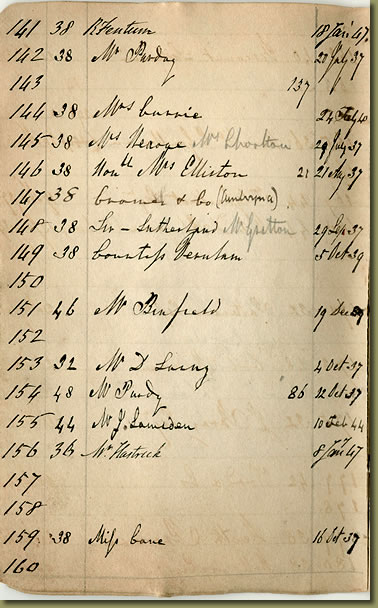 141 38 R Fentum 18 Jan 47
142 38 Mr Purday 22 July 37
143 137
144 38 Mrs Currie 24 Feb 40
145 38 Mrs 29 July 37
146 38 Honble Mrs Elliston 21 21 May 37
147 38 Cramer & Co
148 38 Sir - Sutherland Mr Gratton 29 Sep 37
149 38 Countess Verulam 5 Oct 39
150
151 46 Mr Binfield 19 Dec
152
153 32 Mr D Laing 4 Oct 37
154 48 Mr Purdy 86 12 Oct 37
155 44 Mr J. Lamsden 10 Feb 44
156 38 Mr Hastrick 8 Jan 47
157
158
159 38 Miss Cave 16 Oct 37
160